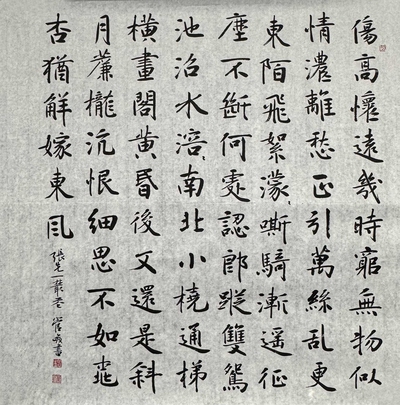 傷高懷遠幾時窮無物似
情濃離愁正引萬絲亂更
東陌飛絮濛〻嘶騎漸遥征
塵不斷何處認郎蹤雙鴛
池沼水溶〻南北小橈通梯
橫畫閣黃昏後又還是斜
月簾櫳沉恨細思不如桃
杏猶解嫁東風
張先一叢花 管峻書